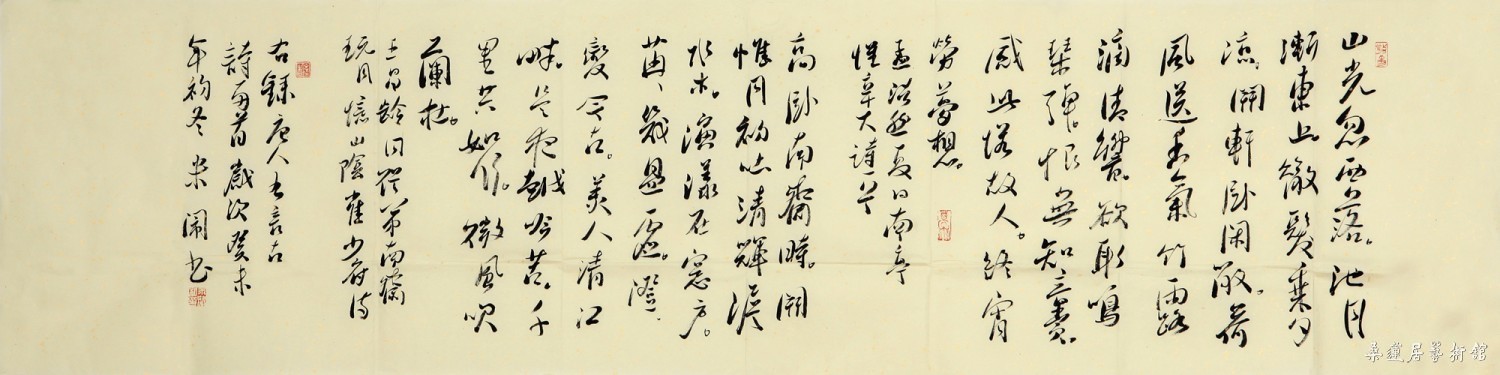 山光忽西落。池月
漸東上。散髮乘夕
涼。開軒卧閑敞。荷
風送香氣竹露
滴清響。欲取鳴
琴彈。恨無知音賞。
感此懷故人。終宵
勞夢想。
孟浩然夏日南亭
懷辛大詩一首
高卧南齋時。開
帷月初吐清輝澹
水木。演漾在窗户。
苒苒幾盈虛。澄澄
變今古。美人清江
畔。是夜越吟苦。千
里共如何。微風吹
蘭杜。
王昌齡同從弟南齋
玩月憶山陰崔少府詩
右錄唐人五言古
詩兩首歲次癸未
年初冬米鬧书
桑蓮居藝術館